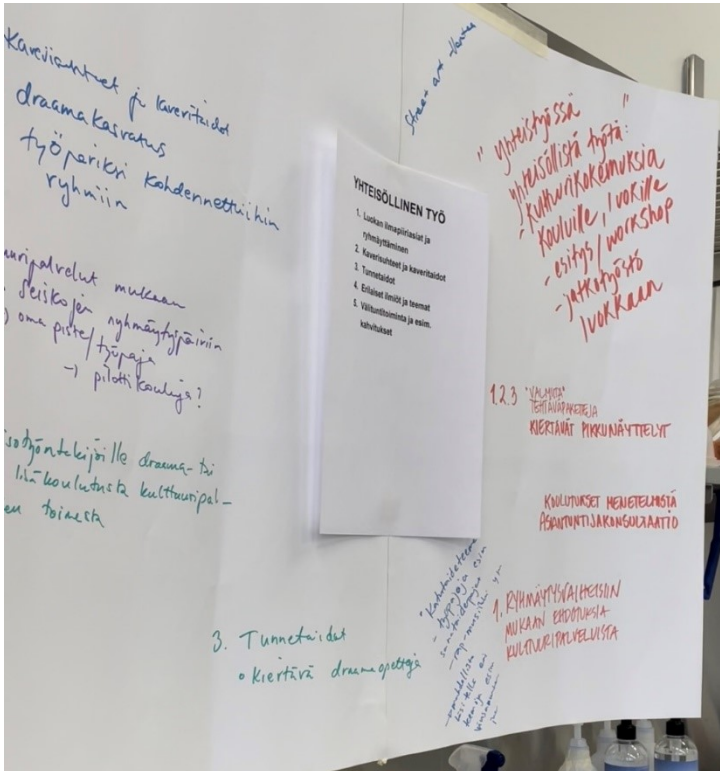 Kaverisuhteet ja kaveritaidot
draamakasvatus
työpariksi kohdennettuihin
ryhmiin
uuripalvelut mukaan
seiskojen ryhmäytypäiviin
oma piste/työpaja
→ pilottikouluja?
sotyöntekijöille draama- tai
lisäkoulutusta kulttuuripal-
en toimesta
3. Tunnetaidot
• kiertävä draamaopettaja
Street art
YHTEISÖLLINEN TYÖ
1. Luokan ilmapiiriasiat ja
ryhmäyttäminen
2. Kaverisuhteet ja kaveritaidot
3. Tunnetaidot
4. Erilaiset ilmiöt ja teemat
5. Välituntitoiminta ja esim.
kahvitukset
"Yhteistyössä"
yhteisöllistä työtä:
- kulttuurikokemuksia
kouluille, luokille
- esitys/workshop
- jatkotyöstö
luokkaan
1.2.3 "VALMIITA"
TEHTÄVÄPAKETTEJA
KIERTÄVÄT PIKKUNÄYTTELYT
KOULUTUKSET MENETELMISTÄ
ASIANTUNTIJAKONSULTAATIO
1. RYHMÄYTYSVAIHEISIIN
MUKAAN EHDOTUKSIA
KULTTUURIPALVELUISTA
- työpajoja esim
- rap-musiikki